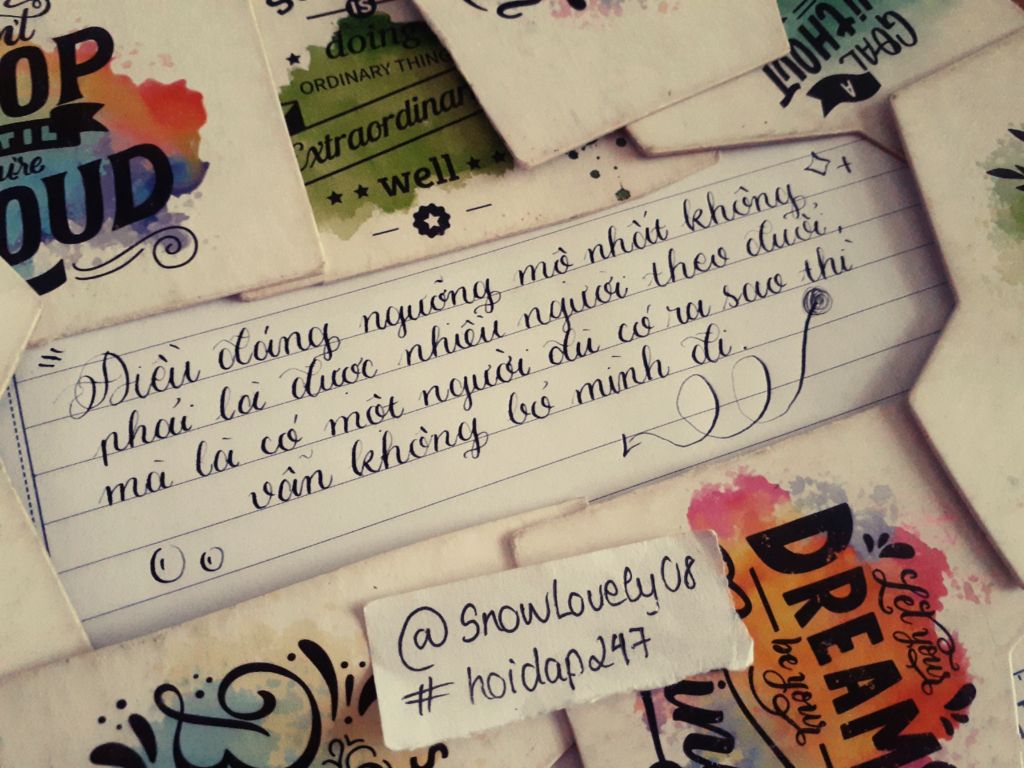 n't
OP
TIL
u're
OUD
IS
doing
ORDINARY THING
Extraordinar
well
GOAL
A
WITHOUT
Điều đáng ngưỡng mộ nhất không
phải là được nhiều người theo đuổi,
mà là có một người dù có ra sao thì
vẫn không bỏ mình đi.
@SnowLovely08
# hoidap247
Let your
DREAM
be your